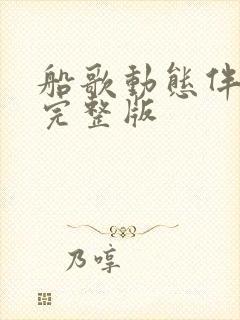 船歌動態伴
完整版
乃啍